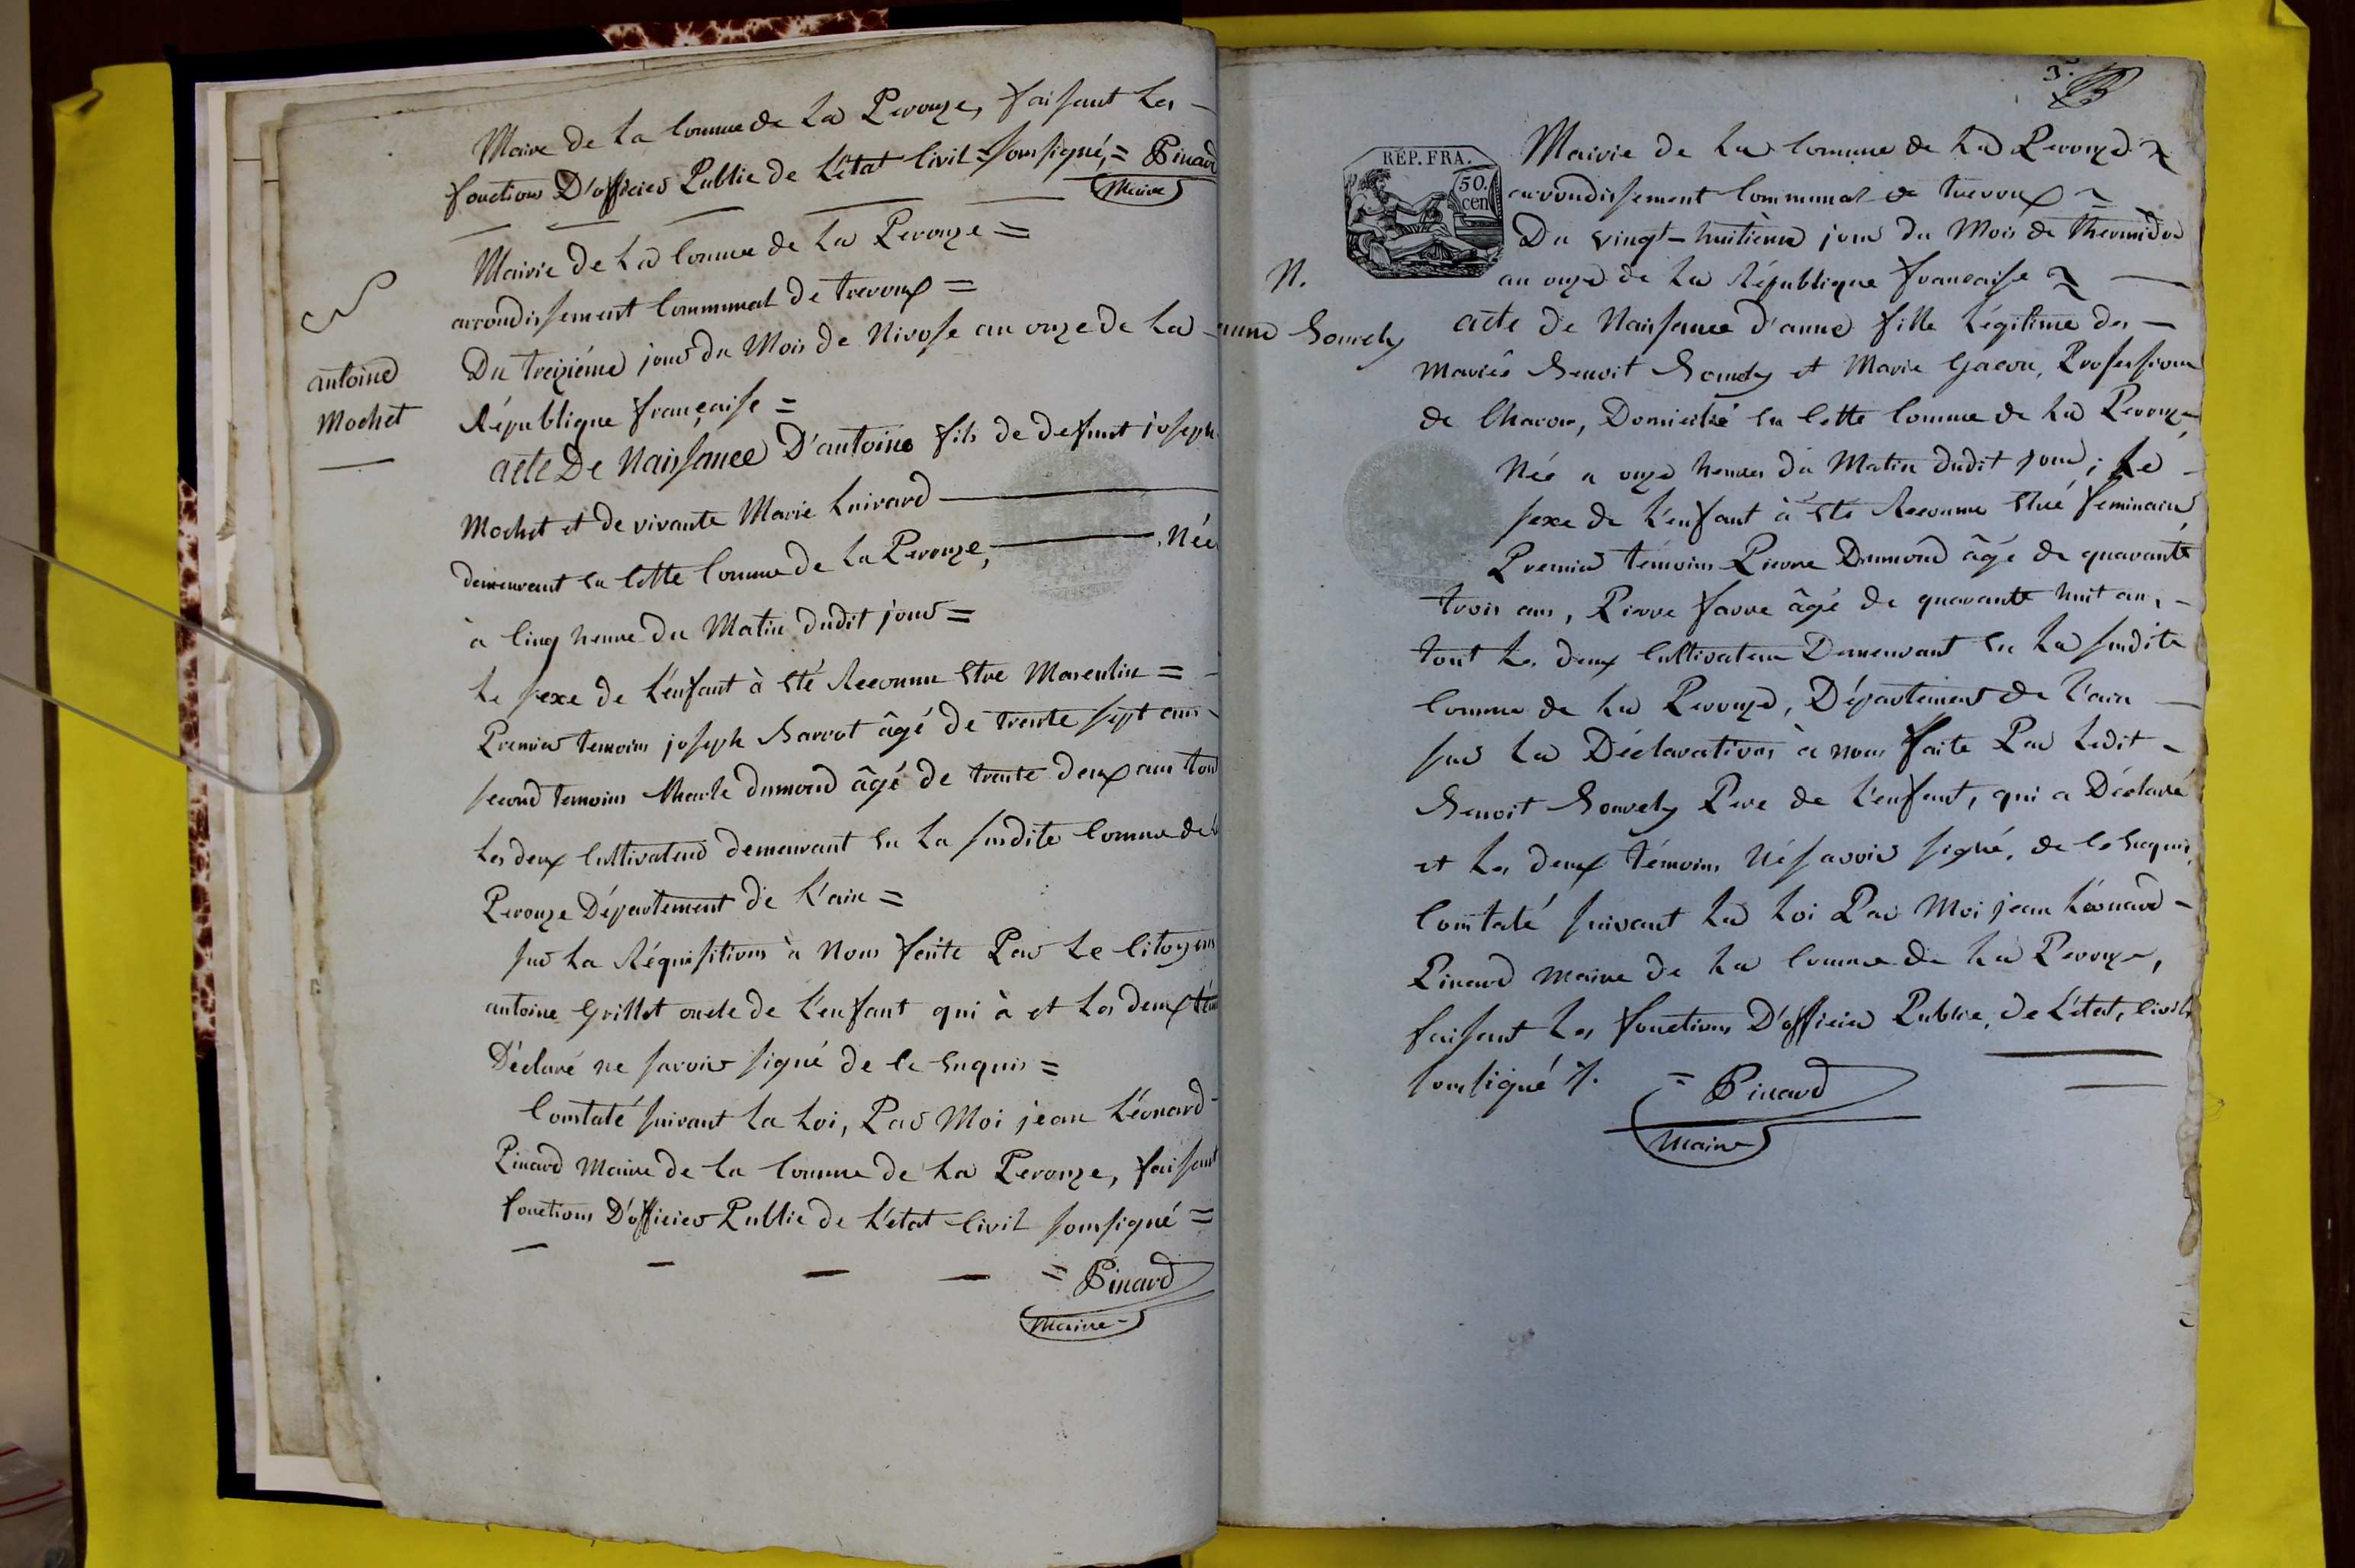 Maire de la Comune de La Perouze, faisant les
fonctions D'officier Public de L'état Civil = soussigné, = Pinard
Maire
Mairie de La Comune de La Perouze =
arrondissement Communal de trevoux =
Du treizième jour du Mois de Nivose an onze de La
République française =
antoine
Mochet
acte De Naissance D'antoine fils de defunt joseph
Mochet et de vivante Marie
demeurant en Cette Comune de La Perouze, Née
à Cinq heure du Matin dudit jour =
Le sexe de L'enfant à Eté Reconnu Etre Masculin =
Premier temoins joseph Barrot âgé de trente sept ans
second temoins Charle dumond âgé de trente deux ans tous
Les deux Cultivateur demeurant En La susdite Comune de La
Perouze Département de L'ain =
sur La Réquisitions à Nous faite Par Le Citoyens
antoine Grillet oncle de L'enfant qui à et Les deux
Déclaré ne savoir signé de Ce Enquis =
Constaté suivant La Loi, Par Moi jean Léonard
Pinard Maire de La Comune de La Perouze, faisant
fonctions D'officier Public de L'état Civil soussigné =
= Pinard
Maire
RÉP. FRA.
50.
cen
Mairie de La Comune de La Perouze
arrondissement Communal de trevoux
Du vingt-huitième jour du Mois de thermidor
an onze de La République francaise
N.
anne
acte de Naissance d'anne fille Légitime des
Mariés Benoit et Marie Gacon, Professions
de Charon, Domicilié En Cette Comune de La Perouze
Née a onze heures du Matin dudit jour; Le
sexe de L'enfant à Eté Reconnu Etre feminain,
Premier témoins Pierre Dumond âgé de quarante
trois ans, Pierre favre âgé de quarante huit an,
tout Les deux Cultivateur Demeurant En La susdite
Comune de La Perouze, Département de L'ain
sur La Déclarations à nous faite Par Ledit
Benoit Pere de L'enfant, qui a Déclaré
et Les deux témoins Né savoir signé, de Ce Enquis,
Constaté suivant La Loi Par Moi jean Léonard
Pinard Maire de La Comune de La Perouze,
faisant Les fonctions D'officier Public, de L'état, Civil
soussigné = Pinard
Maire